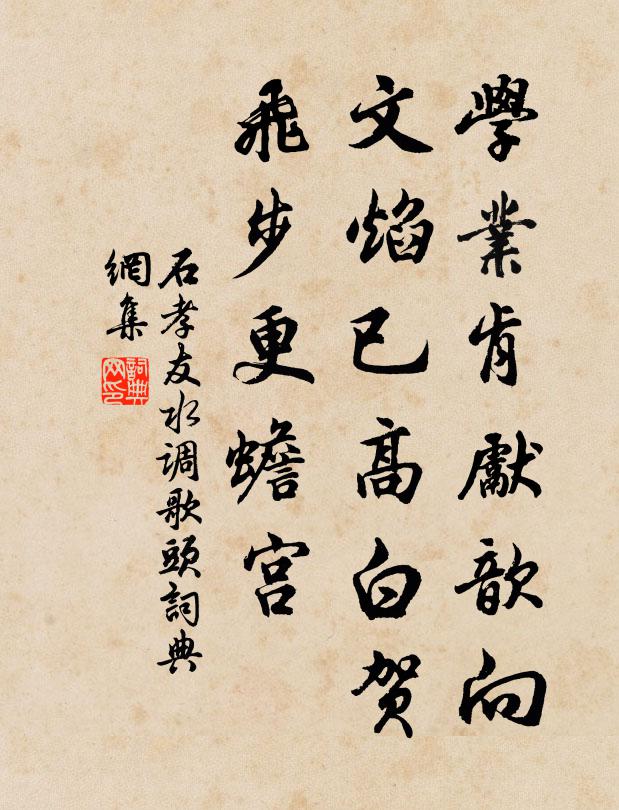 學業肯獻歆向
文焰已高白賀
飛步更蟾宮
石孝友水调歌頭詞典
網集
詞典
网印